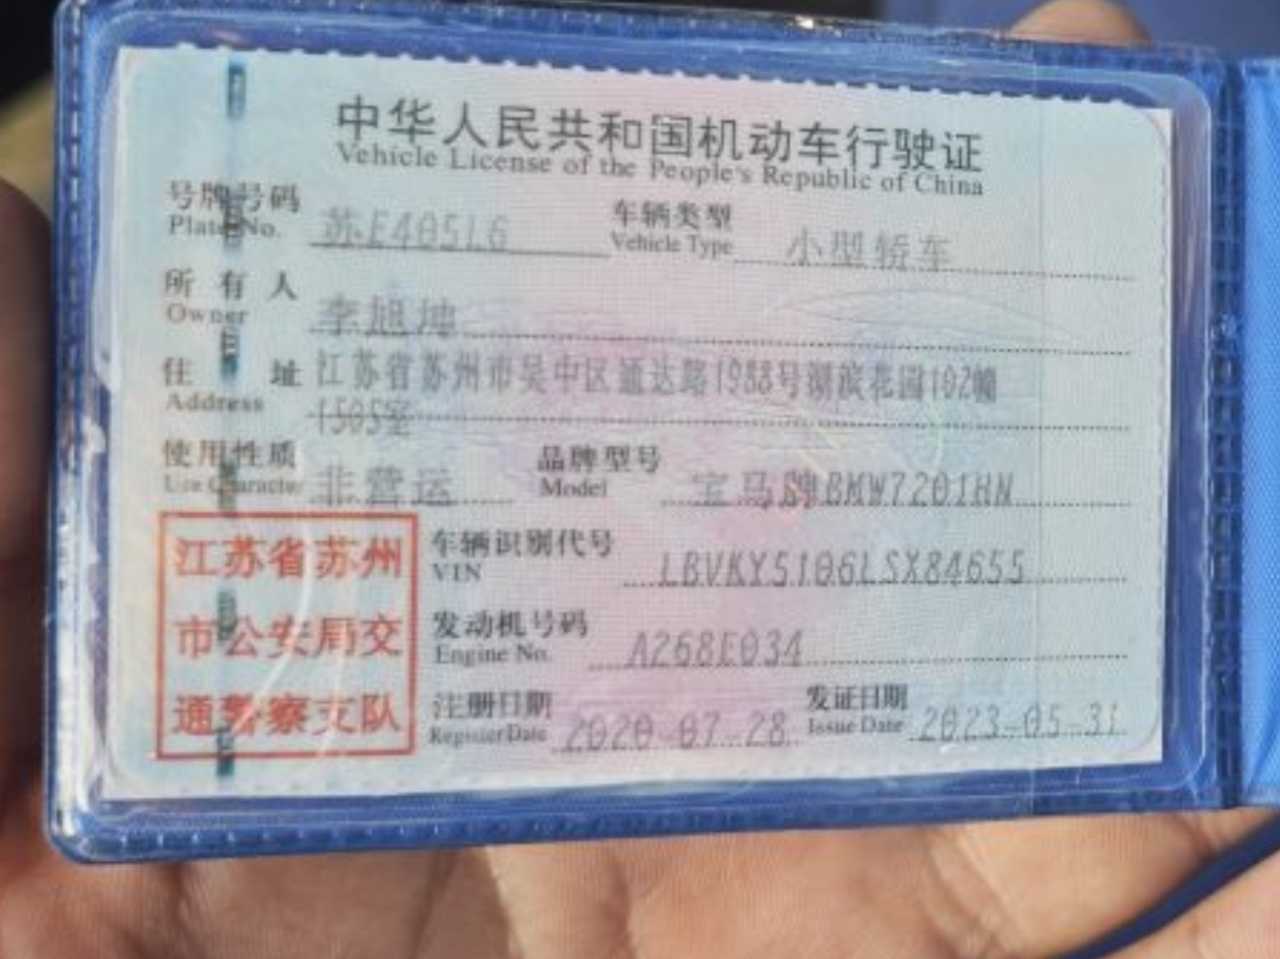 中华人民共和国机动车行驶证
Vehicle License of the People's Republic of China
号牌号码 苏E405L6 车辆类型 小型轿车
Plate No. Vehicle Type
所有人 李旭坤
Owner
住址 江苏省苏州市吴中区通达路1988号湖滨花园102幢
Address 1505室
使用性质 非营运 品牌型号 宝马牌BMW7201HN
Use Character Model
江苏省苏州
市公安局交
通警察支队
车辆识别代号 LBVKY5106LSX84655
VIN
发动机号码 A268E034
Engine No.
注册日期 2020-07-28 发证日期 2023-05-31
Register Date Issue Date